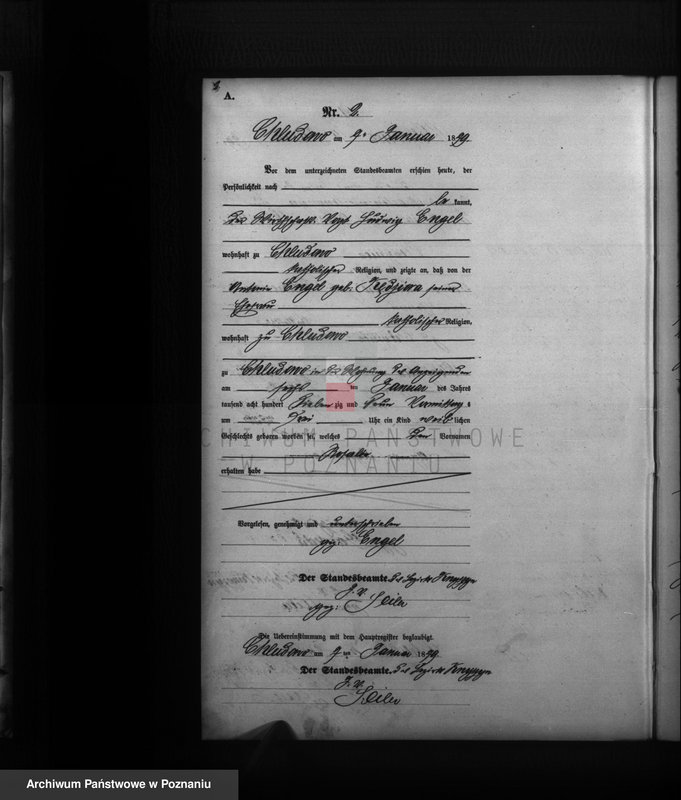 2
A.
Nr. 2.
Chludowo am 9. Januar 1879
Vor dem unterzeichneten Standesbeamten erschien heute, der
Persönlichkeit nach
be kannt,
der Wirthschafts Vogt Ludwig Engel
wohnhaft zu Chludowo
katholischer Religion, und zeigte an, daß von der
Antonie Engel geb. seiner
Ehefrau
katholischer Religion,
wohnhaft zu Chludowo
zu Chludowo in der Wohnung des Anzeigenden
am sechs ten Januar des Jahres
tausend acht hundert sieben zig und neun Vormittags
um drei Uhr ein Kind weib lichen
Geschlechts geboren worden sei, welches den Vornamen
Rosalie
erhalten habe
Vorgelesen, genehmigt und unterschrieben
gez. Engel
Der Standesbeamte. des Bezirks
J. V.
gez:
Die Uebereinstimmung mit dem Hauptregister beglaubigt.
Chludowo am 9 ten Januar 1879.
Der Standesbeamte. des Bezirks
J. V.
ARCHIWUM PAŃSTWOWE
W POZNANIU
Archiwum Państwowe w Poznaniu